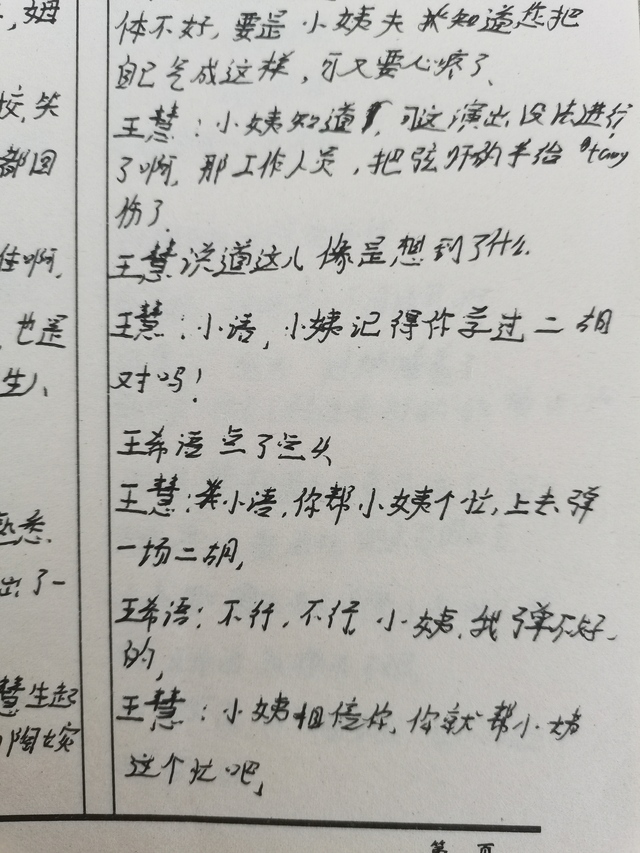 ，姆
校，笑
都回
住啊，
，也是
生)、
熟悉
出了一
慧生起
陶婉
体不好，要是小姨夫知道您把
自己气成这样，可又要心疼了、
王慧：小姨知道，可这演出没法进行
了啊，那工作人员，把弦师的手给
伤了、
王慧说道这儿像是想到了什么
王慧：小语，小姨记得你学过二胡
对吗！
王希语点了点头
王慧：小语，你帮小姨个忙，上去弹
一场二胡，
王希语：不行，不行，小姨，我弹不好
的，
王慧：小姨相信你，你就帮小姨
这个忙吧，
第 页